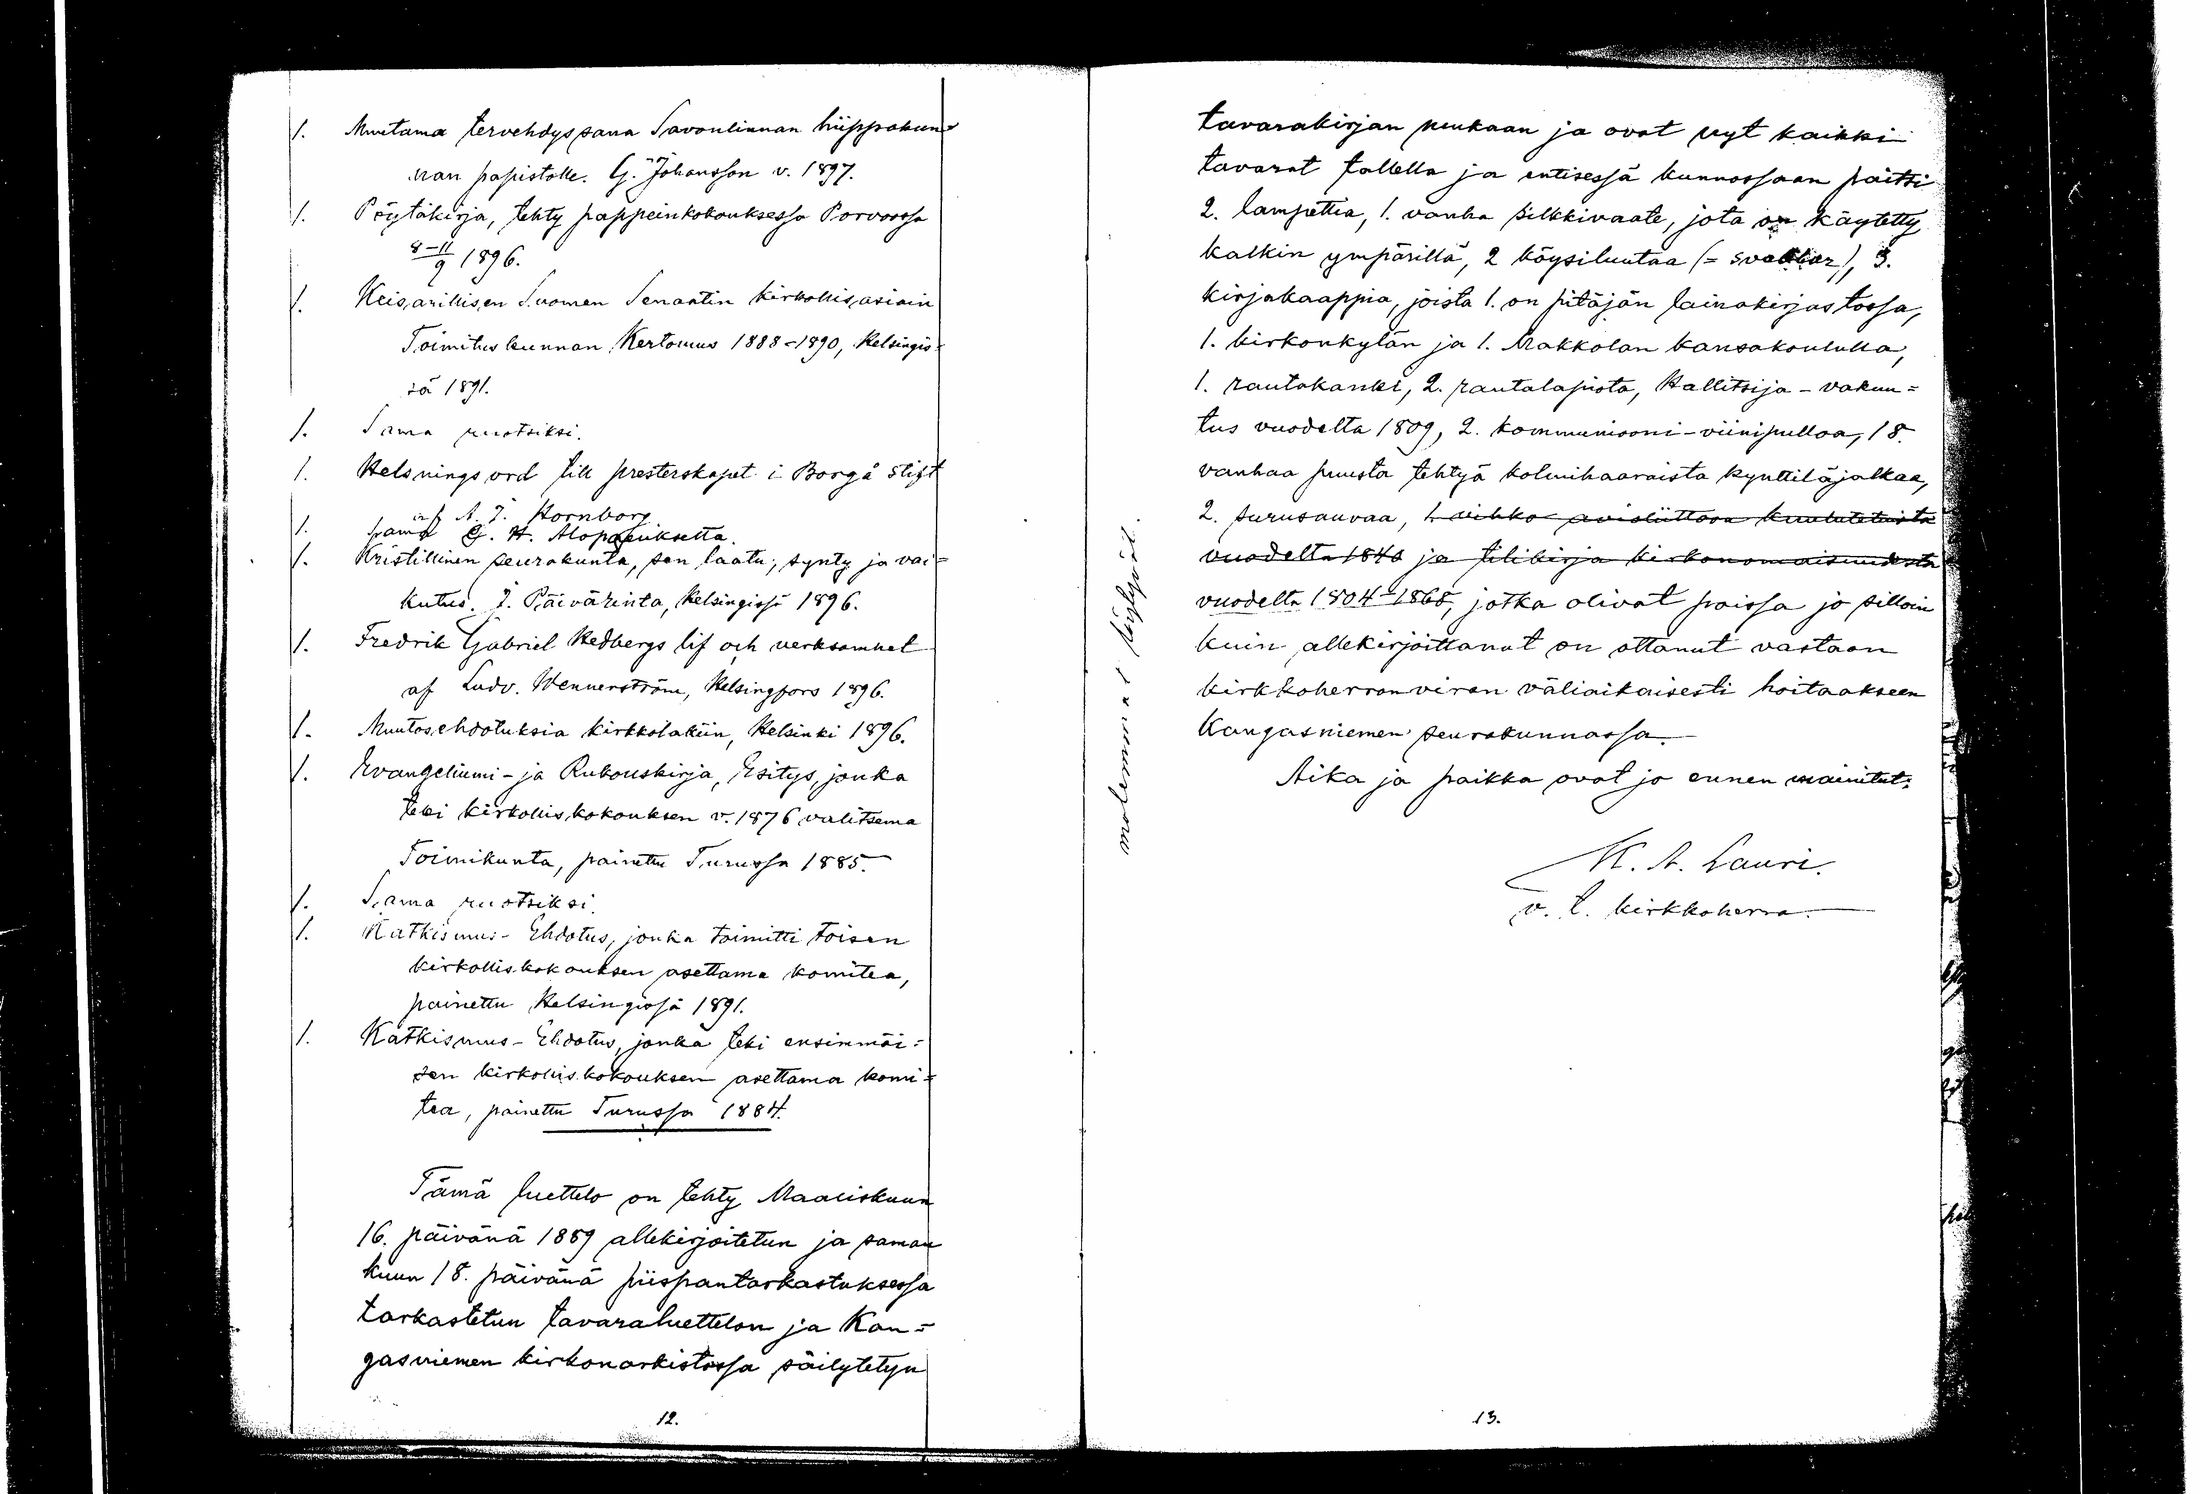 1. Muutama tervehdyssana Savonlinnan hiippakun-
nan papistolle. G. Johansson v. 1897.
1. Pöytäkirja, tehty pappeinkokouksessa Porvoossa
8-11/9 1896.
1. Keisarillisen Suomen Senaatin kirkollisasiain
Toimituskunnan Kertomus 1888-1890, Helsingis=
sä 1891.
1. Sama ruotsiksi.
1. Helsningsord till presterskapet i Borgå Stift
af A. J. Hornborg
1. sama C. H. Alopæuksetta.
1. Kristillinen seurakunta, sen laatu, synty ja vai=
kutus. J. Päivärinta, Helsingissä 1896.
1. Fredrik Gabriel Hedbergs lif och verksamhet
af Ludv. Wennerström, Helsingfors 1896.
1. Muutosehdotuksia kirkkolakiin, Helsinki 1896.
1. Evangeliumi- ja Rukouskirja, Esitys, jonka
teki kirkolliskokouksen v. 1876 valitsema
Toimikunta, painettu Turussa 1885.
1. Sama ruotsiksi.
1. Katkismus-Ehdotus, jonka toimitti toisen
kirkolliskokouksen asettama komitea,
painettu Helsingissä 1891.
1. Katkismus-Ehdotus, jonka teki ensimmäi=
sen kirkolliskokouksen asettama komi=
tea, painettu Turussa 1884.
Tämä luettelo on tehty Maaliskuun
16. päivänä 1889 allekirjoitetun ja saman
kuun 18. päivänä piispantarkastuksessa
tarkastetun tavaraluettelon ja Kan=
gasniemen kirkonarkistossa säilytetyn
12.
tavarakirjan mukaan ja ovat nyt kaikki
tavarat tallella ja entisessä kunnossaan paitsi
2. lampettia, 1. vanha silkkivaate, jota on käytetty
kalkin ympärillä, 2 köysiluutaa (= svabbar), 3.
kirjakaappia, joista 1. on pitäjän lainakirjastossa,
1. kirkonkylän ja 1. Makkolan kansakoululla,
1. rautakanki, 2. rautalapiota, Hallitsija-vakuu=
tus vuodelta 1809, 2. kommuniooni-viinipulloa, 18.
vanhaa puusta tehtyä kolmihaaraista kynttiläjalkaa,
2. surusauvaa, 1. vihko avioliittoon kuulutetuista
vuodelta 1840 ja tilikirja kirkonomaisuudesta
vuodelta 1804-1868, jotka olivat poissa jo silloin
kuin allekirjoittanut on ottanut vastaan
kirkkoherranviran väliaikaisesti hoitaakseen
Kangasniemen seurakunnassa.
Aika ja paikka ovat jo ennen mainitut.
K. A. Lauri.
v. t. kirkkoherra.
molemmat löytyvät.
13.